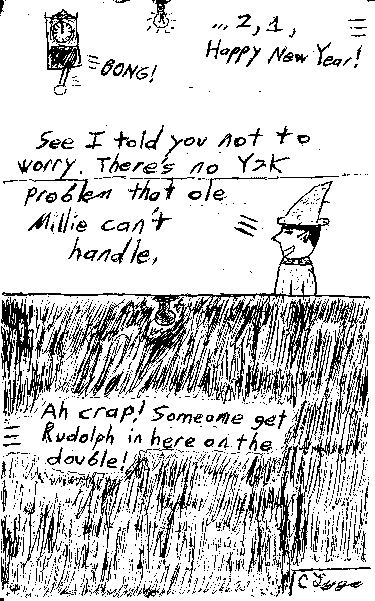 ... 2, 1,
Happy New Year!
BONG!
See I told you not to
worry. There's no Y2K
problem that ole
Millie can't
handle.
Ah crap! Someome get
Rudolph in here on the
double!